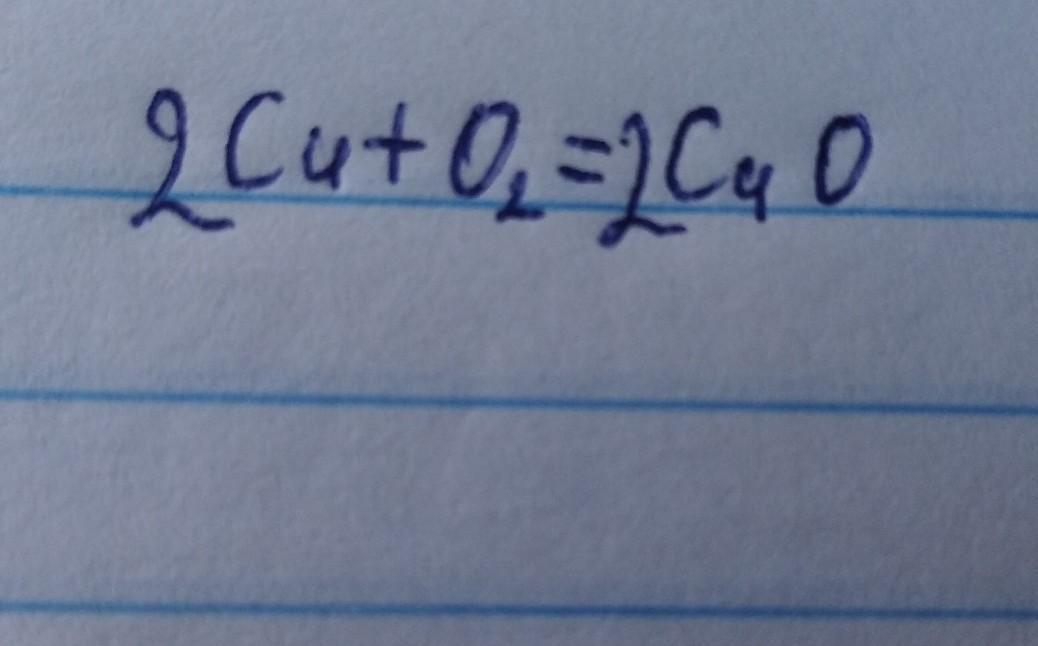 2Cu+O₂=2CuO